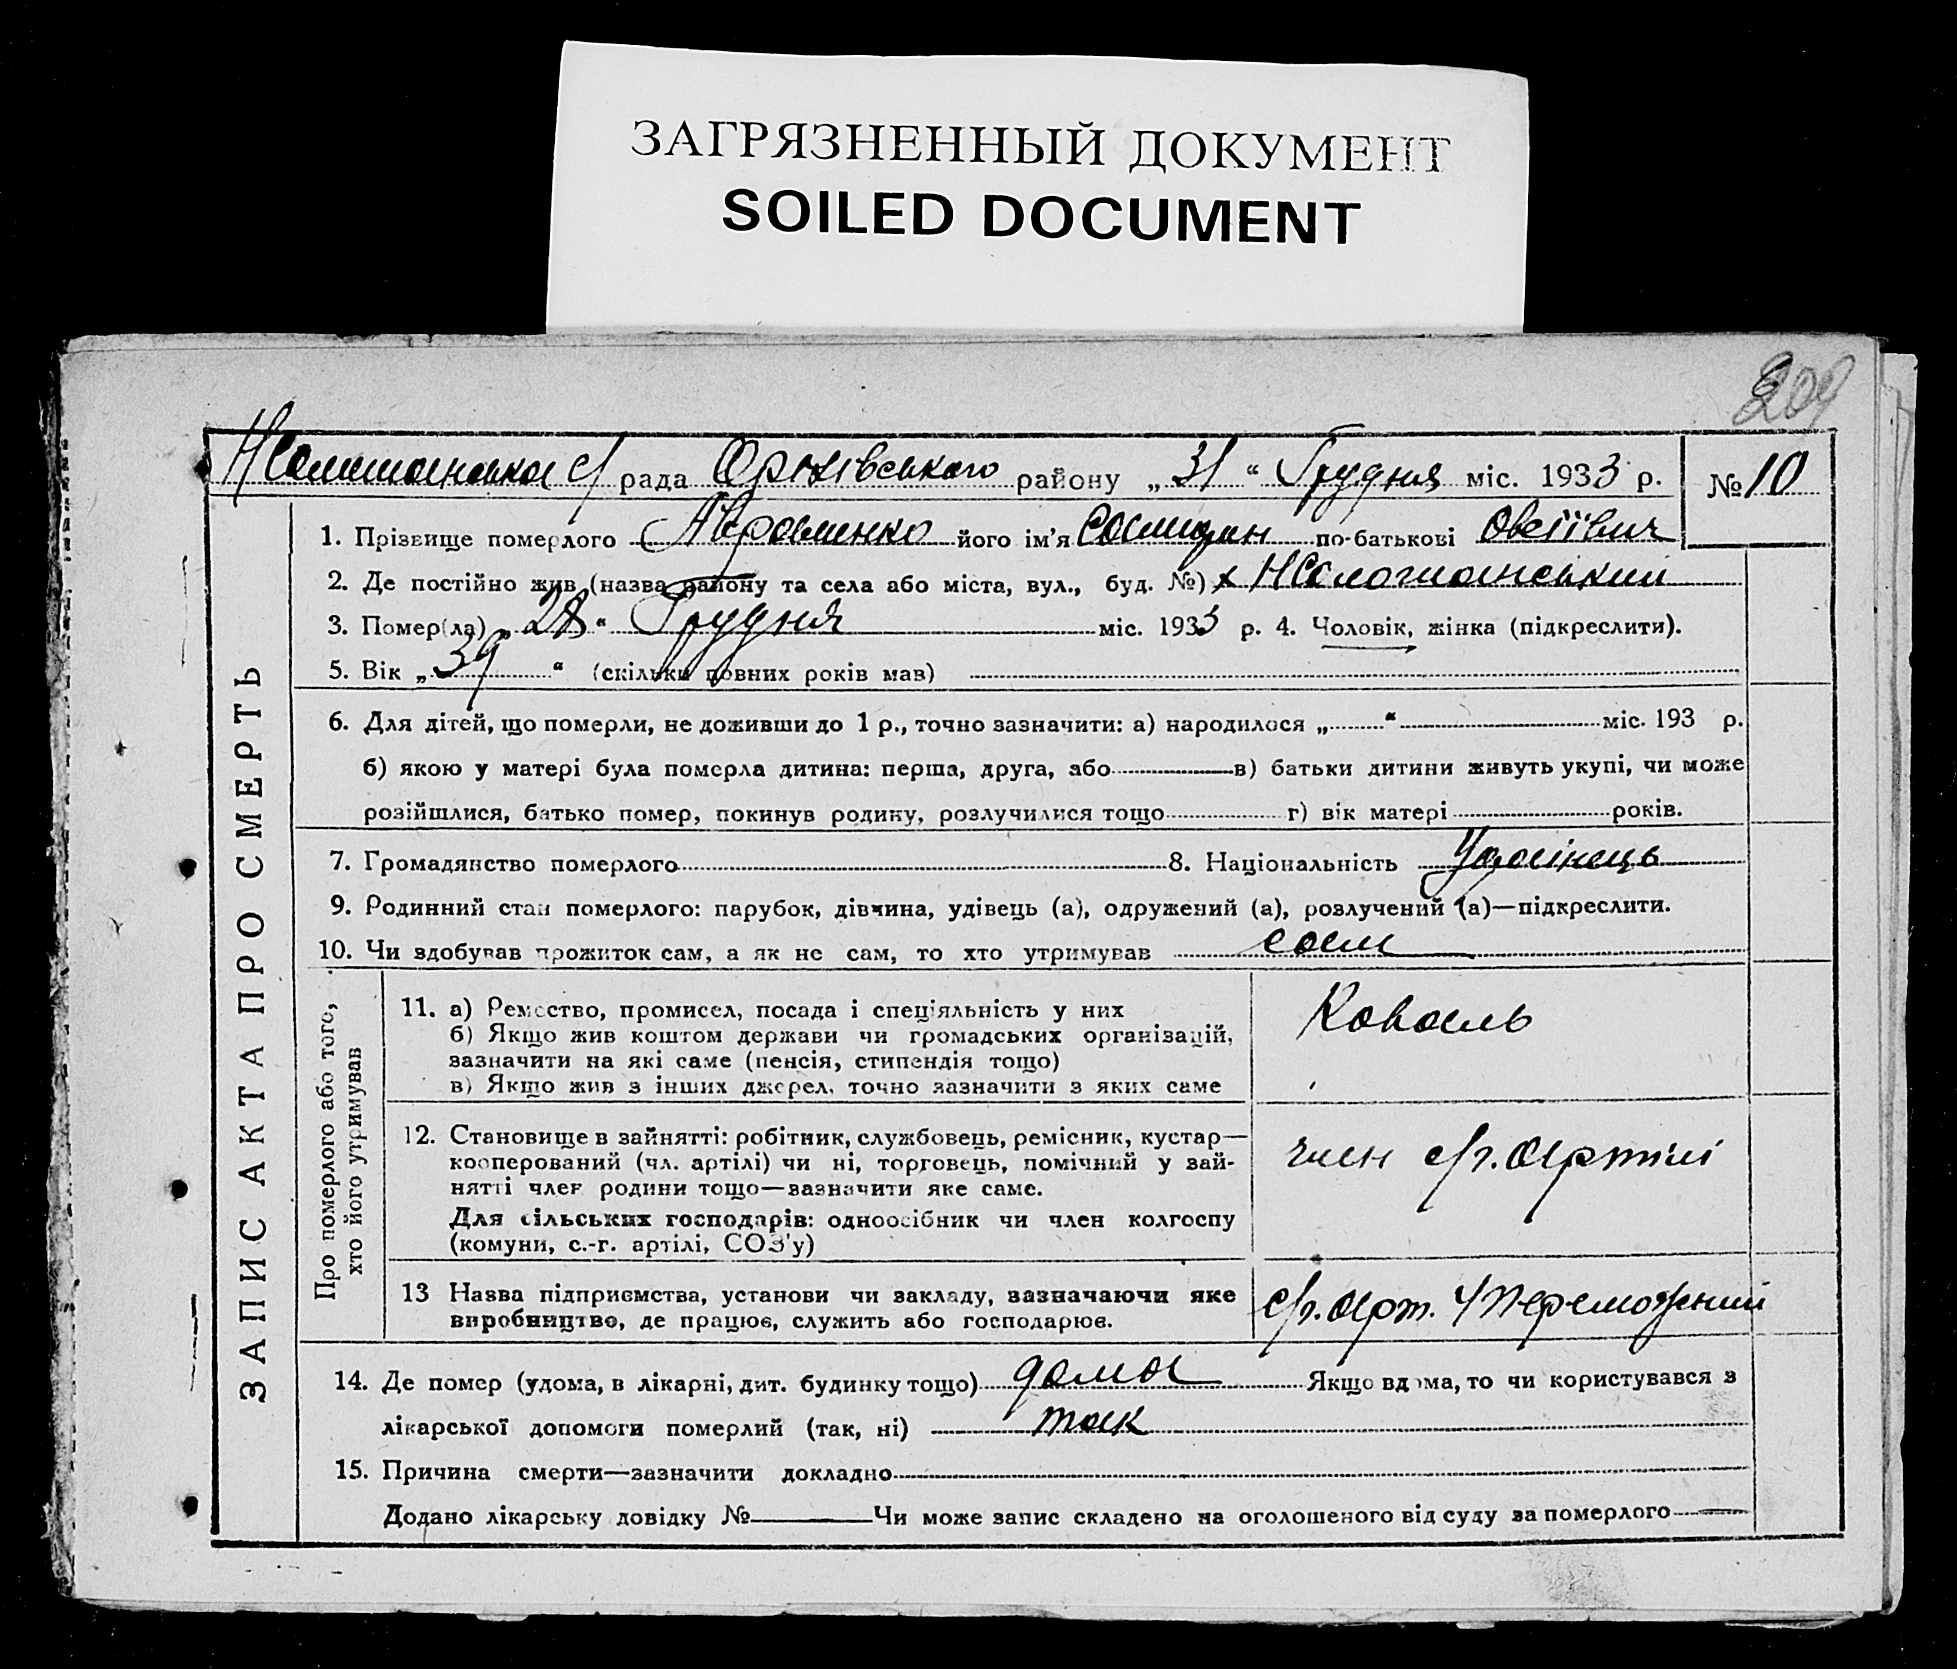 ЗАГРЯЗНЕННЫЙ ДОКУМЕНТ
SOILED DOCUMENT
209
с/ рада Оріхівського району „31“ Грудня міс. 1933 р. № 10
1. Прізвище померлого Авраменко його ім'я по-батькові Овсіївич
2. Де постійно жив (назва району та села або міста, вул., буд. №) х
3. Помер(ла) „28“ Грудня міс. 1933 р. 4. Чоловік, жінка (підкреслити).
5. Вік „39“ (скільки повних років мав)
6. Для дітей, що померли, не доживши до 1 р., точно зазначити: а) народилося „ “ міс. 193 р.
б) якою у матері була померла дитина: перша, друга, або в) батьки дитини живуть укупі, чи може
розійшлися, батько помер, покинув родину, розлучилися тощо г) вік матері років.
7. Громадянство померлого 8. Національність Украінець
9. Родинний стан померлого: парубок, дівчина, удівець (а), одружений (а), розлучений (а)—підкреслити.
10. Чи здобував прожиток сам, а як не сам, то хто утримував сам
ЗАПИС АКТА ПРО СМЕРТЬ
Про померлого або того,
хто його утримував
11. а) Ремество, промисел, посада і спеціяльність у них
б) Якщо жив коштом держави чи громадських організацій,
зазначити на які саме (пенсія, стипендія тощо)
в) Якщо жив з інших джерел, точно зазначити з яких саме
Коваль
12. Становище в зайнятті: робітник, службовець, ремісник, кустар—
кооперований (чл. артілі) чи ні, торговець, помічний у зай-
нятті член родини тощо—зазначити яке саме.
Для сільських господарів: одноосібник чи член колгоспу
(комуни, с.-г. артілі, СОЗ'у)
член с/г. Артілі
13 Назва підприємства, установи чи закладу, зазначаючи яке
виробництво, де працює, служить або господарює.
с/г. арт.
14. Де помер (удома, в лікарні, дит. будинку тощо) дома Якщо вдома, то чи користувався з
лікарської допомоги померлий (так, ні) так
15. Причина смерти—зазначити докладно
Додано лікарську довідку № Чи може запис складено на оголошеного від суду за померлого